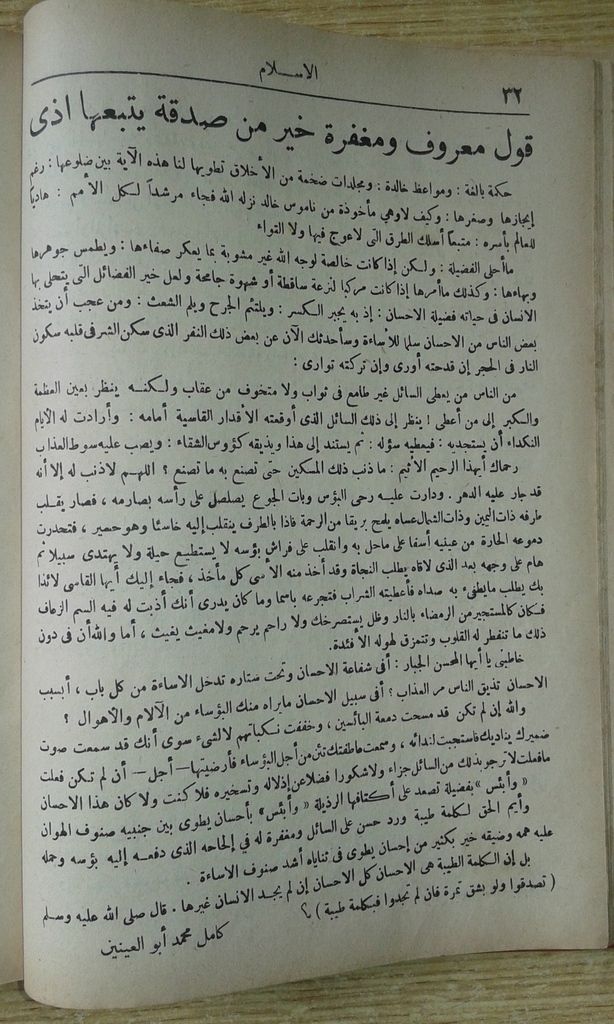 الاسلام
٣٢
قول معروف ومغفرة خير من صدقة يتبعها اذى
حكمة بالغة : ومواعظ خالدة : ومجلدات ضخمة من الأخلاق تطويها لنا هذه الآية بين ضلوعها : رغم
إيجازها وصغرها : وكيف لا وهى مأخوذة من ناموس خالد نزله الله فجاء مرشداً لكل الأمم : هاديا
للعالم بأسره : متبعاً أسلك الطرق التى لا عوج فيها ولا التواء
ما أحلى الفضيلة : ولكن إذا كانت خالصة لوجه الله غير مشوبة بما يعكر صفاءها : ويطمس جوهرها
وبهاءها : وكذلك ما أمرها إذا كانت مركبا لنزعة ساقطة أو شهوة جامحة ولعل خير الفضائل التى يتحلى بها
الانسان فى حياته فضيلة الاحسان : إذ به يجبر الكسر : ويلتئم الجرح ويلم الشعث : ومن عجب أن يتخذ
بعض الناس من الاحسان سلما للاساءة وسأحدثك الآن عن بعض ذلك النفر الذى سكن الشر فى قلبه سكون
النار فى الحجر إن قدحته أورى وإن تركته توارى :
من الناس من يعطى السائل غير طامع فى ثواب ولا متخوف من عقاب ولكنه ينظر بعين العظمة
والكبر إلى من أعطى ! ينظر إلى ذلك السائل الذى أوقعته الأقدار القاسية أمامه : وأرادت له الأيام
النكداء أن يستجديه : فيعطيه سؤله : ثم يستند إلى هذا ويذيقه كؤوس الشقاء : ويصب عليه سوط العذاب
رحماك أيهذا الرحيم الأثيم : ما ذنب ذلك المسكين حتى تصنع به ما تصنع ؟ اللهم لا ذنب له إلا أنه
قد جار عليه الدهر . ودارت عليه رحى البؤس وبات الجوع يصلصل على رأسه بصارمه ، فصار يقلب
طرفه ذات اليمين وذات الشمال عساه يلمح بريقا من الرحمة فاذا بالطرف ينقلب إليه خاسئا وهو حسير ، فتحدرت
دموعه الحارة من عينيه أسفا على ما حل به وانقلب على فراش بؤسه لا يستطيع حيلة ولا يهتدى سبيلا ثم
هام على وجهه بعد الذى لاقاه يطلب النجاة وقد أخذ منه الأسى كل مأخذ ، فجاء إليك أيها القاسى لائذا
بك يطلب ما يطفىء به صداه فأعطيته الشراب فتجرعه باسما وما كان يدرى أنك أذبت له فيه السم الزعاف
فكان كالمستجير من الرمضاء بالنار وظل يستصرخك ولا راحم يرحم ولا مغيث يغيث ، أما والله أن فى دون
ذلك ما تنفطر له القلوب وتتمزق لهوله الأفئدة .
خاطبنى يا أيها المحسن الجبار : أفى شفاعة الاحسان وتحت ستاره تدخل الاساءة من كل باب ، أبسبب
الاحسان تذيق الناس مر العذاب ؟ أفى سبيل الاحسان ما يراه منك البؤساء من الآلام والأهوال ؟
والله إن لم تكن قد مسحت دمعة البائسين ، وخففت نكباتهم لا لشىء سوى أنك قد سمعت صوت
ضميرك يناديك فاستجبت لندائه ، وسمعت عاطفتك تئن من أجل البؤساء فأرضيتها — أجل — أن لم تكن فعلت
ما فعلت لا ترجو بذلك من السائل جزاء ولا شكورا فضلا عن إذلاله وتسخيره فلا كنت ولا كان هذا الاحسان
« وأبئس » بفضيلة تصعد على أكتافها الرذيلة « وأبئس » بأحسان يطوى بين جنبيه صنوف الهوان
وأيم الحق لكلمة طيبة ورد حسن على السائل ومغفرة له في إلحاحه الذى دفعه إليه بؤسه وحمله
عليه همه وضيقه خير بكثير من إحسان يطوى فى ثناياه أشد صنوف الاساءة .
بل إن الكلمة الطيبة هى الاحسان كل الاحسان إن لم يجد الانسان غيرها . قال صلى الله عليه وسلم
( تصدقوا ولو بشق تمرة فان لم تجدوا فبكلمة طيبة )
كامل محمد أبو العينين